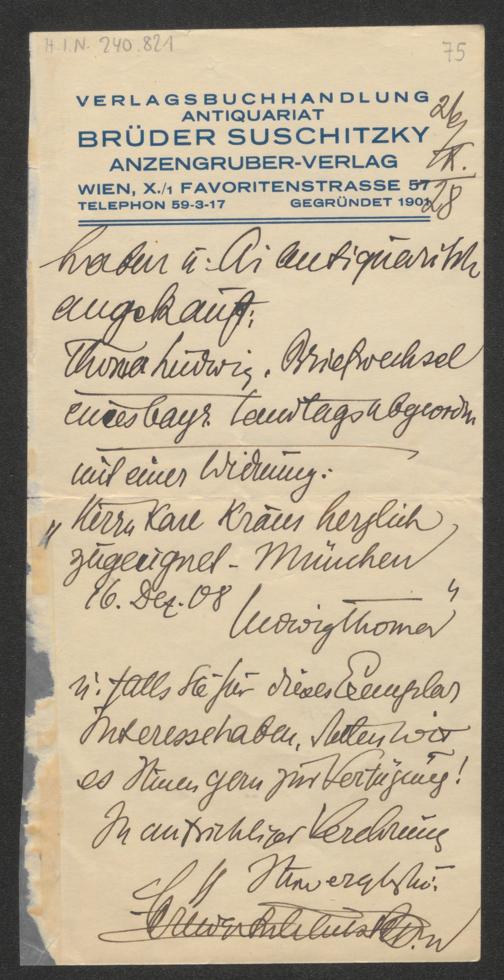 H.I.N. 240.821
75
VERLAGSBUCHHANDLUNG
ANTIQUARIAT
BRÜDER SUSCHITZKY
ANZENGRUBER-VERLAG
WIEN, X./1 FAVORITENSTRASSE 57
TELEPHON 59-3-17 GEGRÜNDET 1901
26/
IX.
28
haben u: antiquarisch
angekauft:
Thoma Ludwig. Briefwechsel
eines bayr. Landtagsabgeordn
mit einer Widmung:
"Herrn Karl Kraus herzlich
zugeeignet - München
16. Dez. 08
Ludwig Thoma"
u: falls Sie für dieses Exemplar
Interesse haben, stellen wir
es Ihnen gern zur Verfügung!
In aufrichtiger Verehrung
Ihr